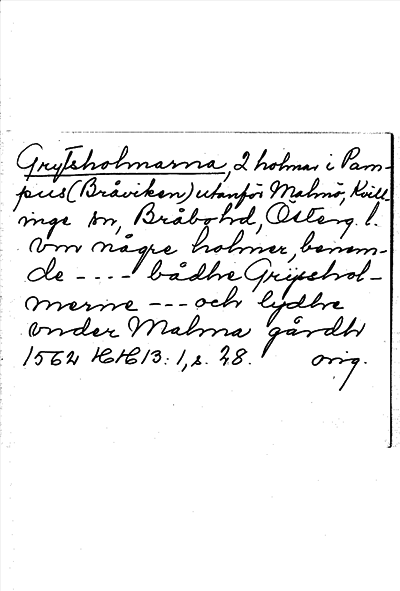 Grytsholmarna, 2 holmar i Pam-
pus (Bråviken) utanför Malmö, Kvill-
inge sn, Bråbo hd, Österg. l.
Vm någre holmer, benem-
de - - - - bådhe Gripshol-
merne - - - och lydhe
vnder Malma gårdh
1562 HH 13: 1, s. 28. orig.